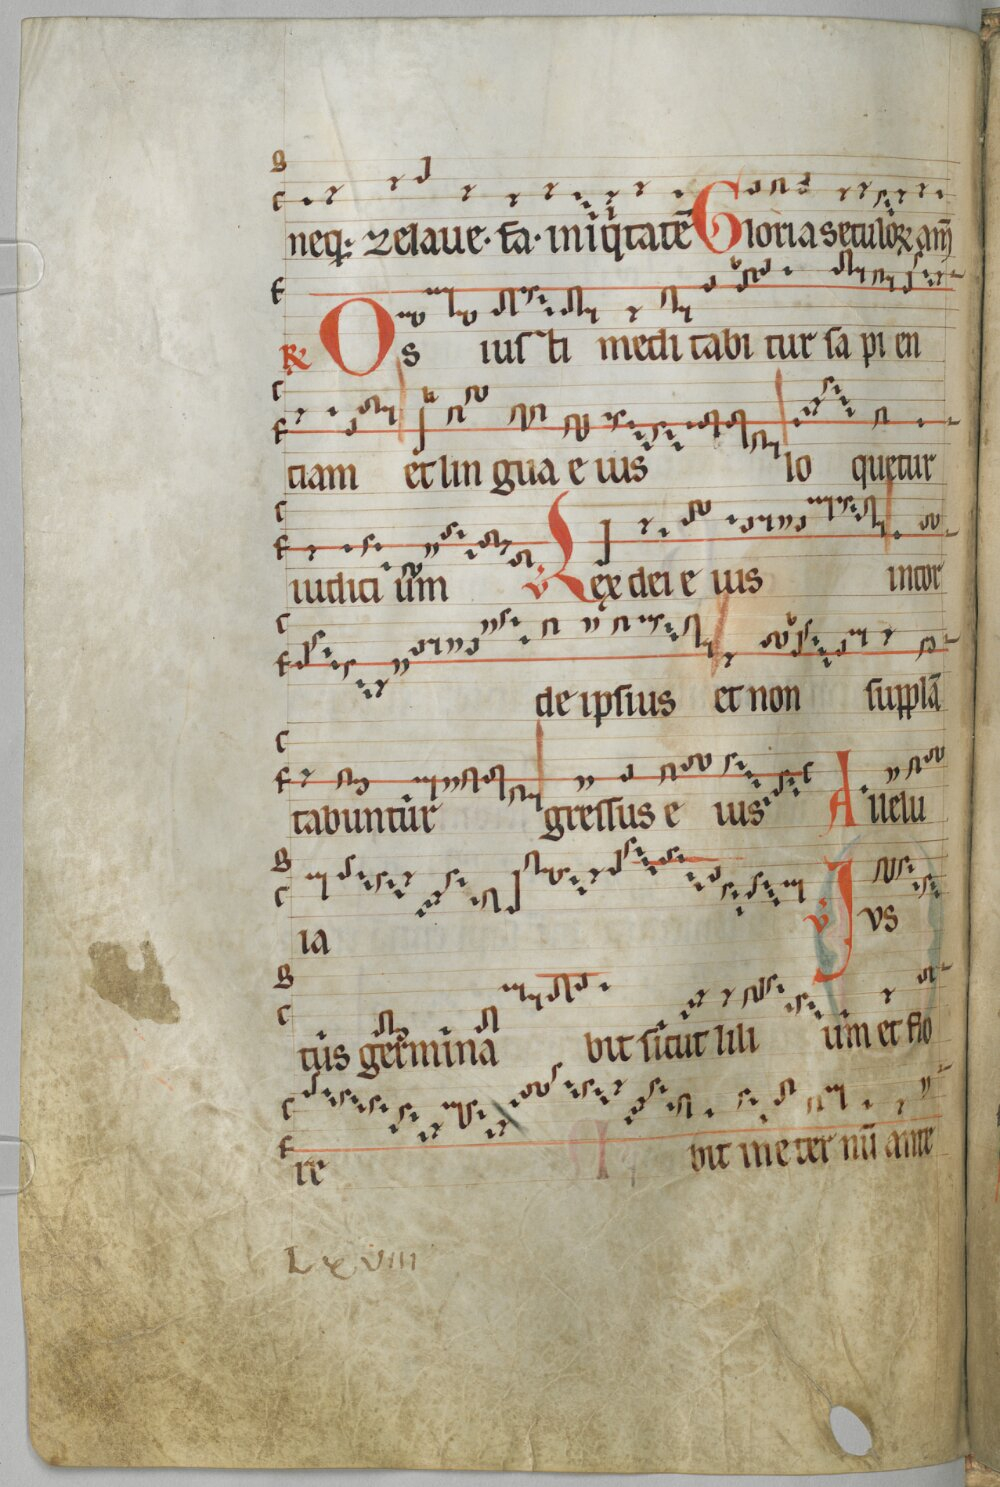 neq; zelaue· fa· iniq̇tatē Gloria seculoꝝ am̄
℟ Os ius ti medi tabi tur sa pi en
tiam et lin gua e ius lo quetur
iudici um ℣ Lex dei e ius in cor
de ipsius et non supplā
tabuntur gressus e ius Allelu
ia ℣ Ius
tus germina bit sicut lili um et flo
re bit in e ter nū ante
Lxviii